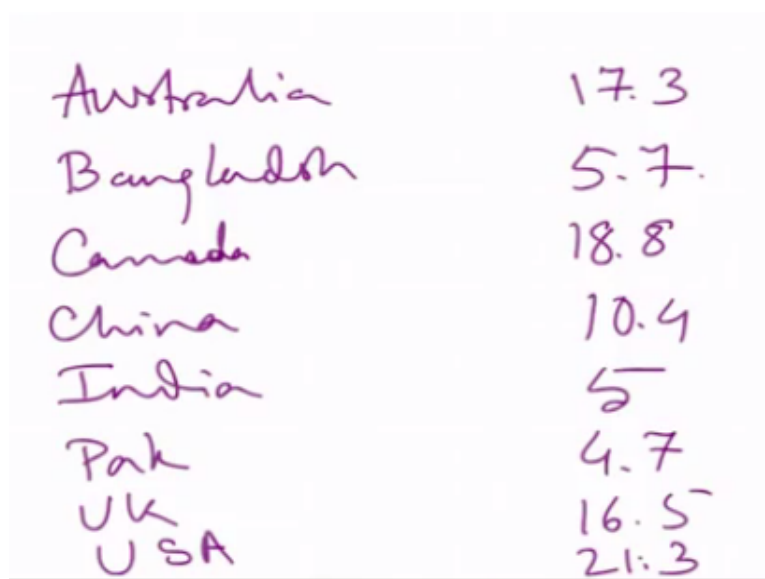 Australia 17.3
Bangladesh 5.7.
Canada 18.8
China 10.4
India 5
Pak 4.7
UK 16.5
USA 21.3